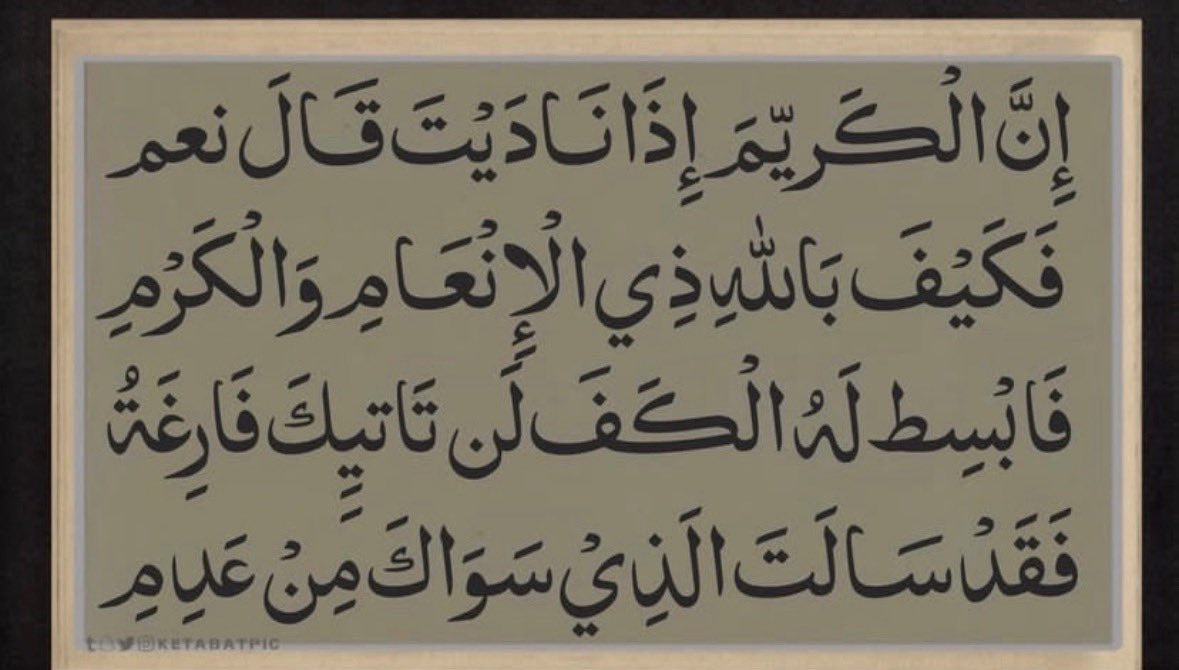 إِنَّ الْكَرِيّمَ إِذَا نَادَيْتَ قَالَ نعم
فَكَيْفَ بَاللهِ ذِي الْإِنْعَامِ وَالْكَرْمِ
فَابْسِط لَهُ الْكَفَ لَن تَاتيِكَ فَارِغَةُ
فَقَدْ سَالَتَ الَذِيْ سَوَاكَ مِنْ عَدِمِ
KETABATPIC